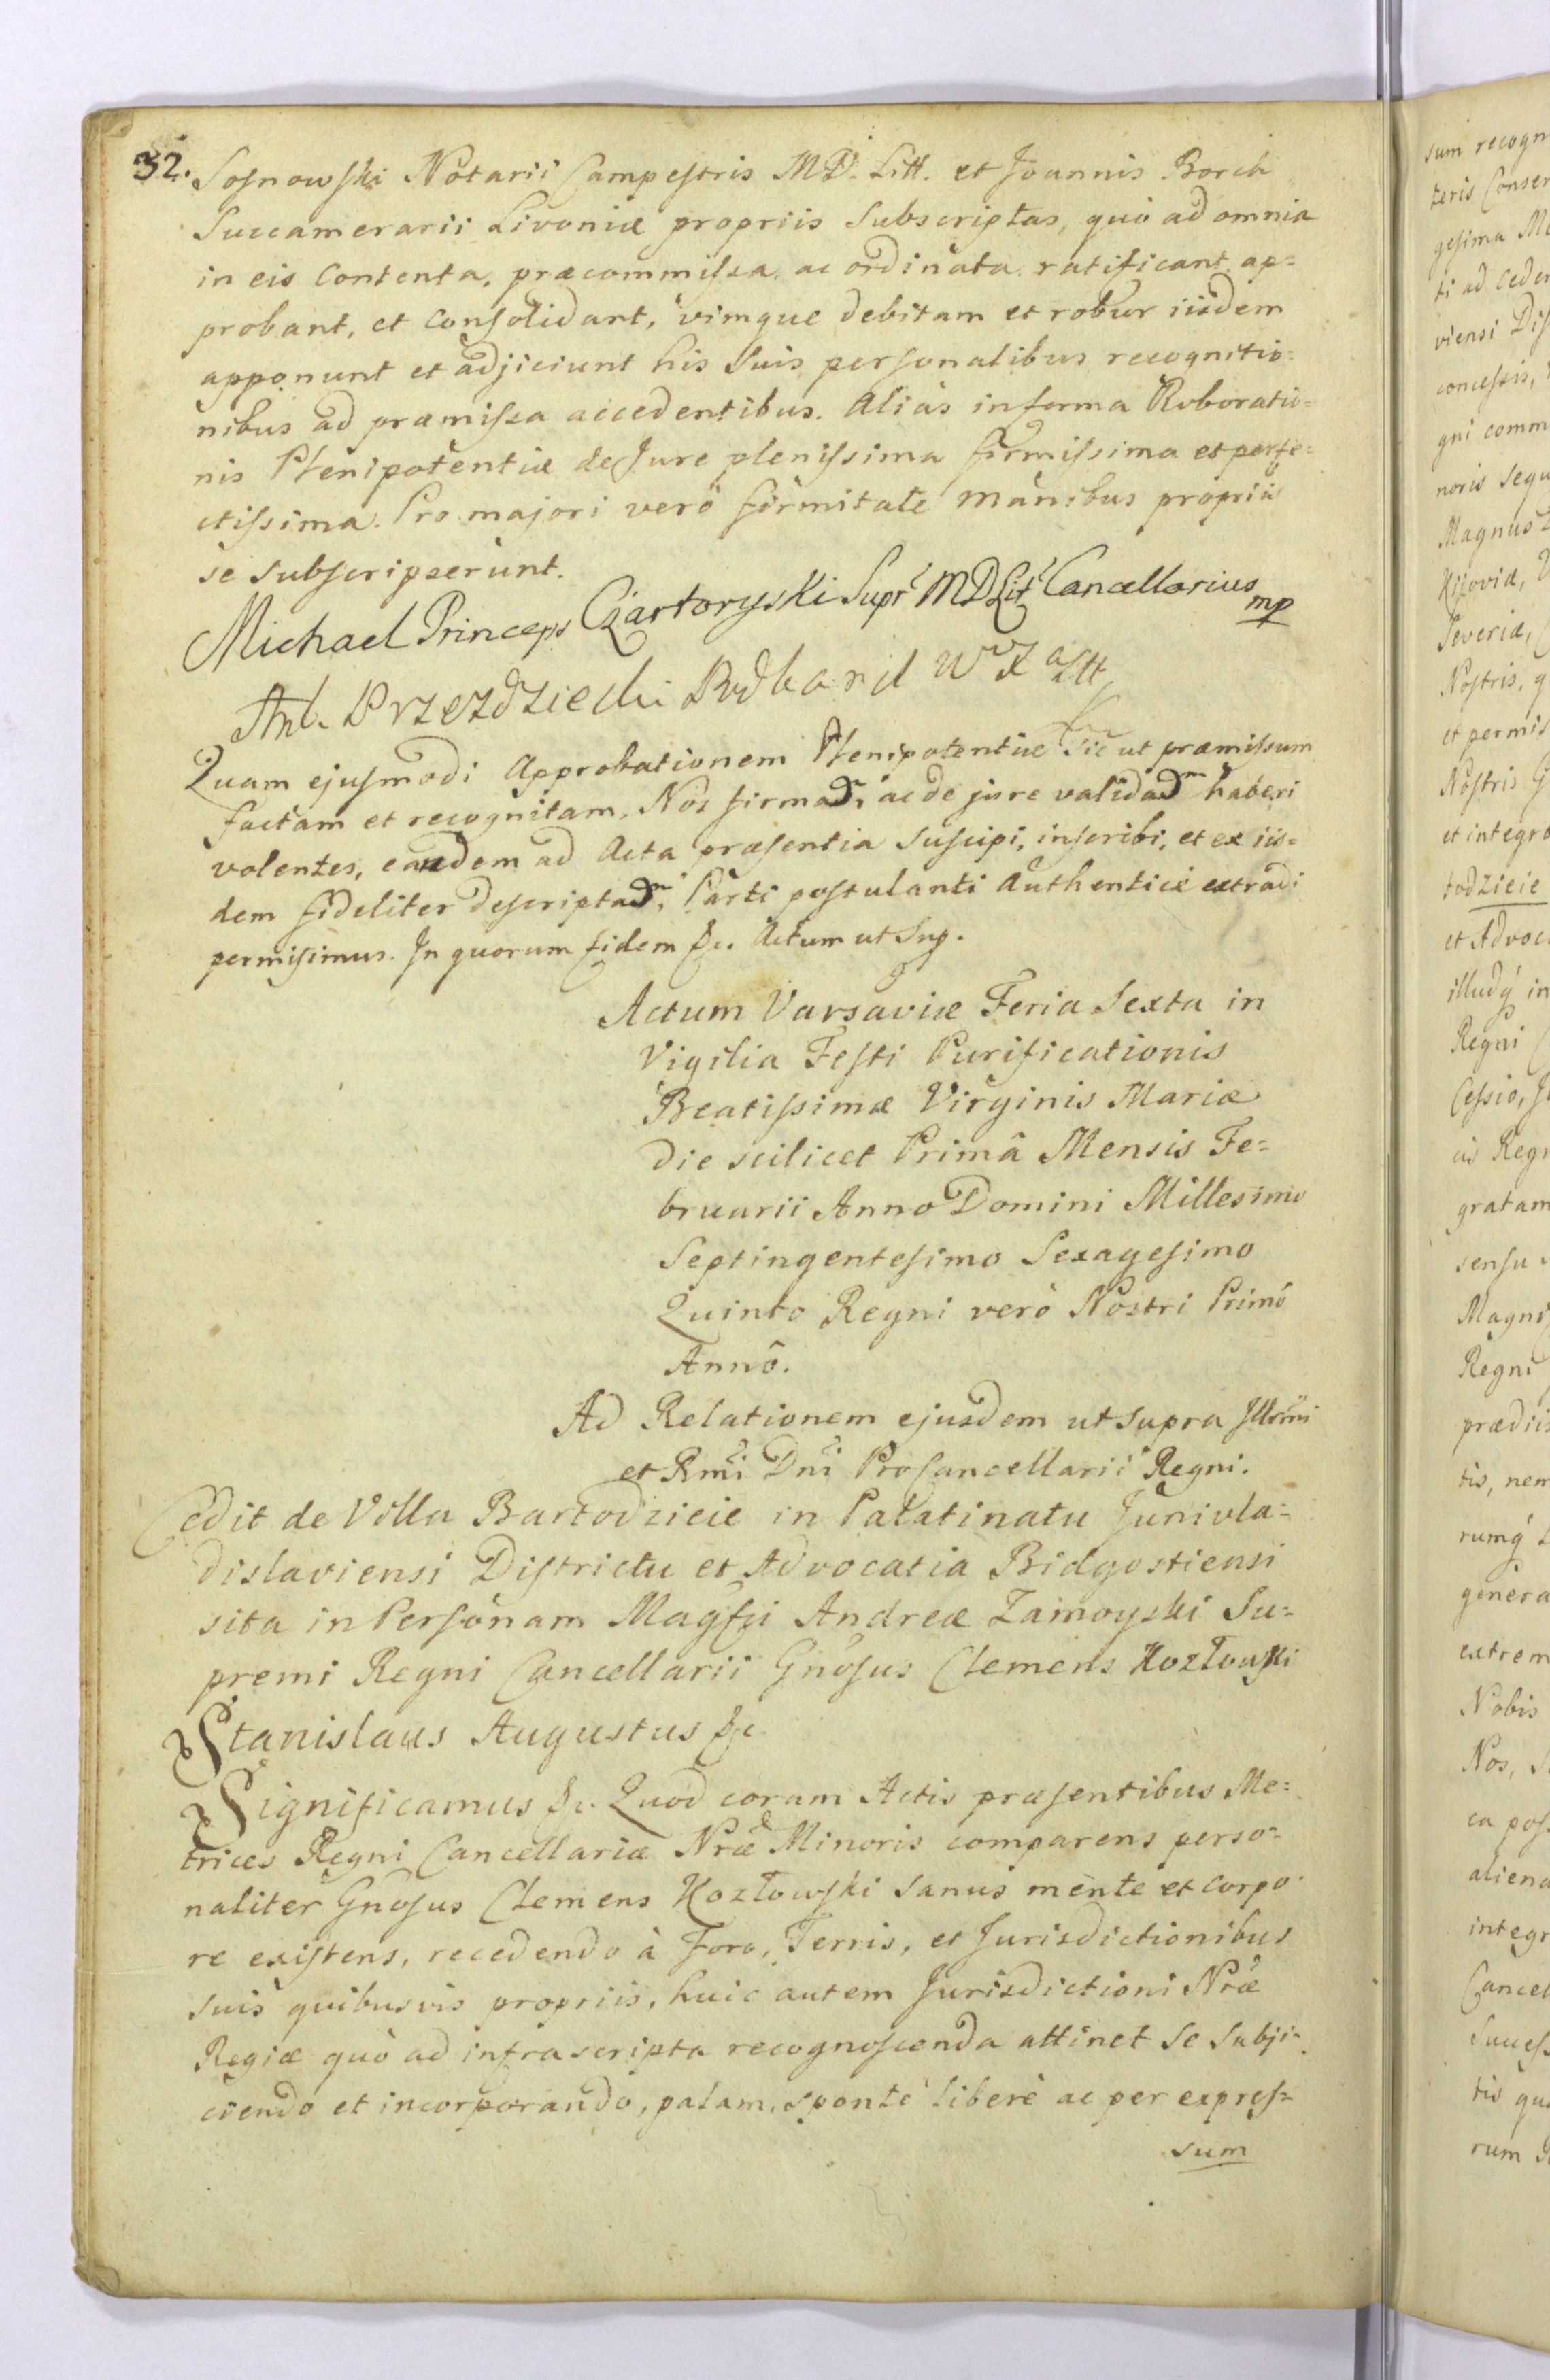 32. Sosnowski Notarii Campestris M.D. Litt. et Joannis Borch
Succamerarii Livoniæ propriis subscriptas, quò ad omnia
in eis Contenta, præcommissa, ac ordinata, ratificant, ap=
probant, et consolidant, vimque debitam et robur iisdem
apponunt et adjiciunt his suis personalibus recognitio=
nibus ad præmissa accedentibus. Aliàs in forma Roboratio=
nis Plenipotentiæ de Jure plenissima firmissima et perfe=
ctissima. Pro majori verò firmitate manibus propriis
se subscripserunt.
Michael Princeps Czartoryski Supr MDLit Cancellarius mp
Ant. Przezdziecki Podkancl W X Litt
Quam ejusmodi Approbationem Plenipotentiæ sic ut præmissum
factam et recognitam, Nos firmam ac de jure validam haberi
volentes, eandem ad Acta præsentia suscipi, inscribi, et ex iis=
dem fideliter descriptam, Parti postulanti Authenticè extradi
permisimus. In quorum fidem &c. Actum ut Sup.
Actum Varsaviæ Feria Sexta in
Vigilia Festi Purificationis
Beatissimæ Virginis Mariæ
die scilicet Primâ Mensis Fe=
bruarii Anno Domini Millesimo
Septingentesimo Sexagesimo
Quinto Regni verò Nostri Primô
Annô.
Ad Relationem ejusdem ut supra Illmi
et Rmi Dni Procancellarii Regni.
Cedit de Villa Bartodzieie in Palatinatu Junivla=
dislaviensi Districtu et Advocatia Bidgostiensi
sita in Personam Magfci Andreæ Zamoyski Su=
premi Regni Cancellarii Gnosus Clemens Kozłowski
Stanislaus Augustus &c.
Significamus &c. Quod coram Actis præsentibus Me=
trices Regni Cancellariæ Nræ Minoris comparens perso=
naliter Gnosus Clemens Kozłowski sanus mente et corpo
re existens, recedendo à Foro, Terris, et Jurisdictionibus
suis quibusvis propriis, huic autem Jurisdictioni Nræ
Regiæ quò ad infrascripta recognoscenda attinet se subji=
ciendo et incorporando, palam, sponte liberè ac per expres=
sum
sum recogn
teris Conse
gesima
ti ad ceden
viensi Dis
concessis,
gni comm
noris sequ
Magnus
Kijoviæ,
Severiæ,
Nostris, q
et permis
Nostris
et integro
todzieie
et Advoc
illudq in
Regni
Cessio,
Regn
gratam
sensu
Magni
Regni
prædiis
tis, nem
rumq
genera
extrem
Nobis
Nos,
ea pos
aliena
integr
Cancel
Succes
tis qu
rum